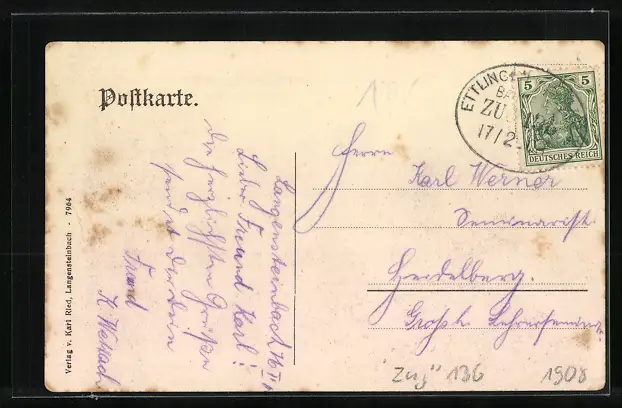 Postkarte.
ETTLINGEN
ZU
17/2
5 5
DEUTSCHES REICH
Herrn
Karl Werner
Seminarist.
Heidelberg.
Großh. Lehrerseminar
Langensteinbach 16 II
Lieber Freund Karl!
Die herzlichsten Grüße
sendet Dir Dein
Freund
K.
Verlag v. Karl Ried, Langensteinbach - 7964
"Zug" 136 1908